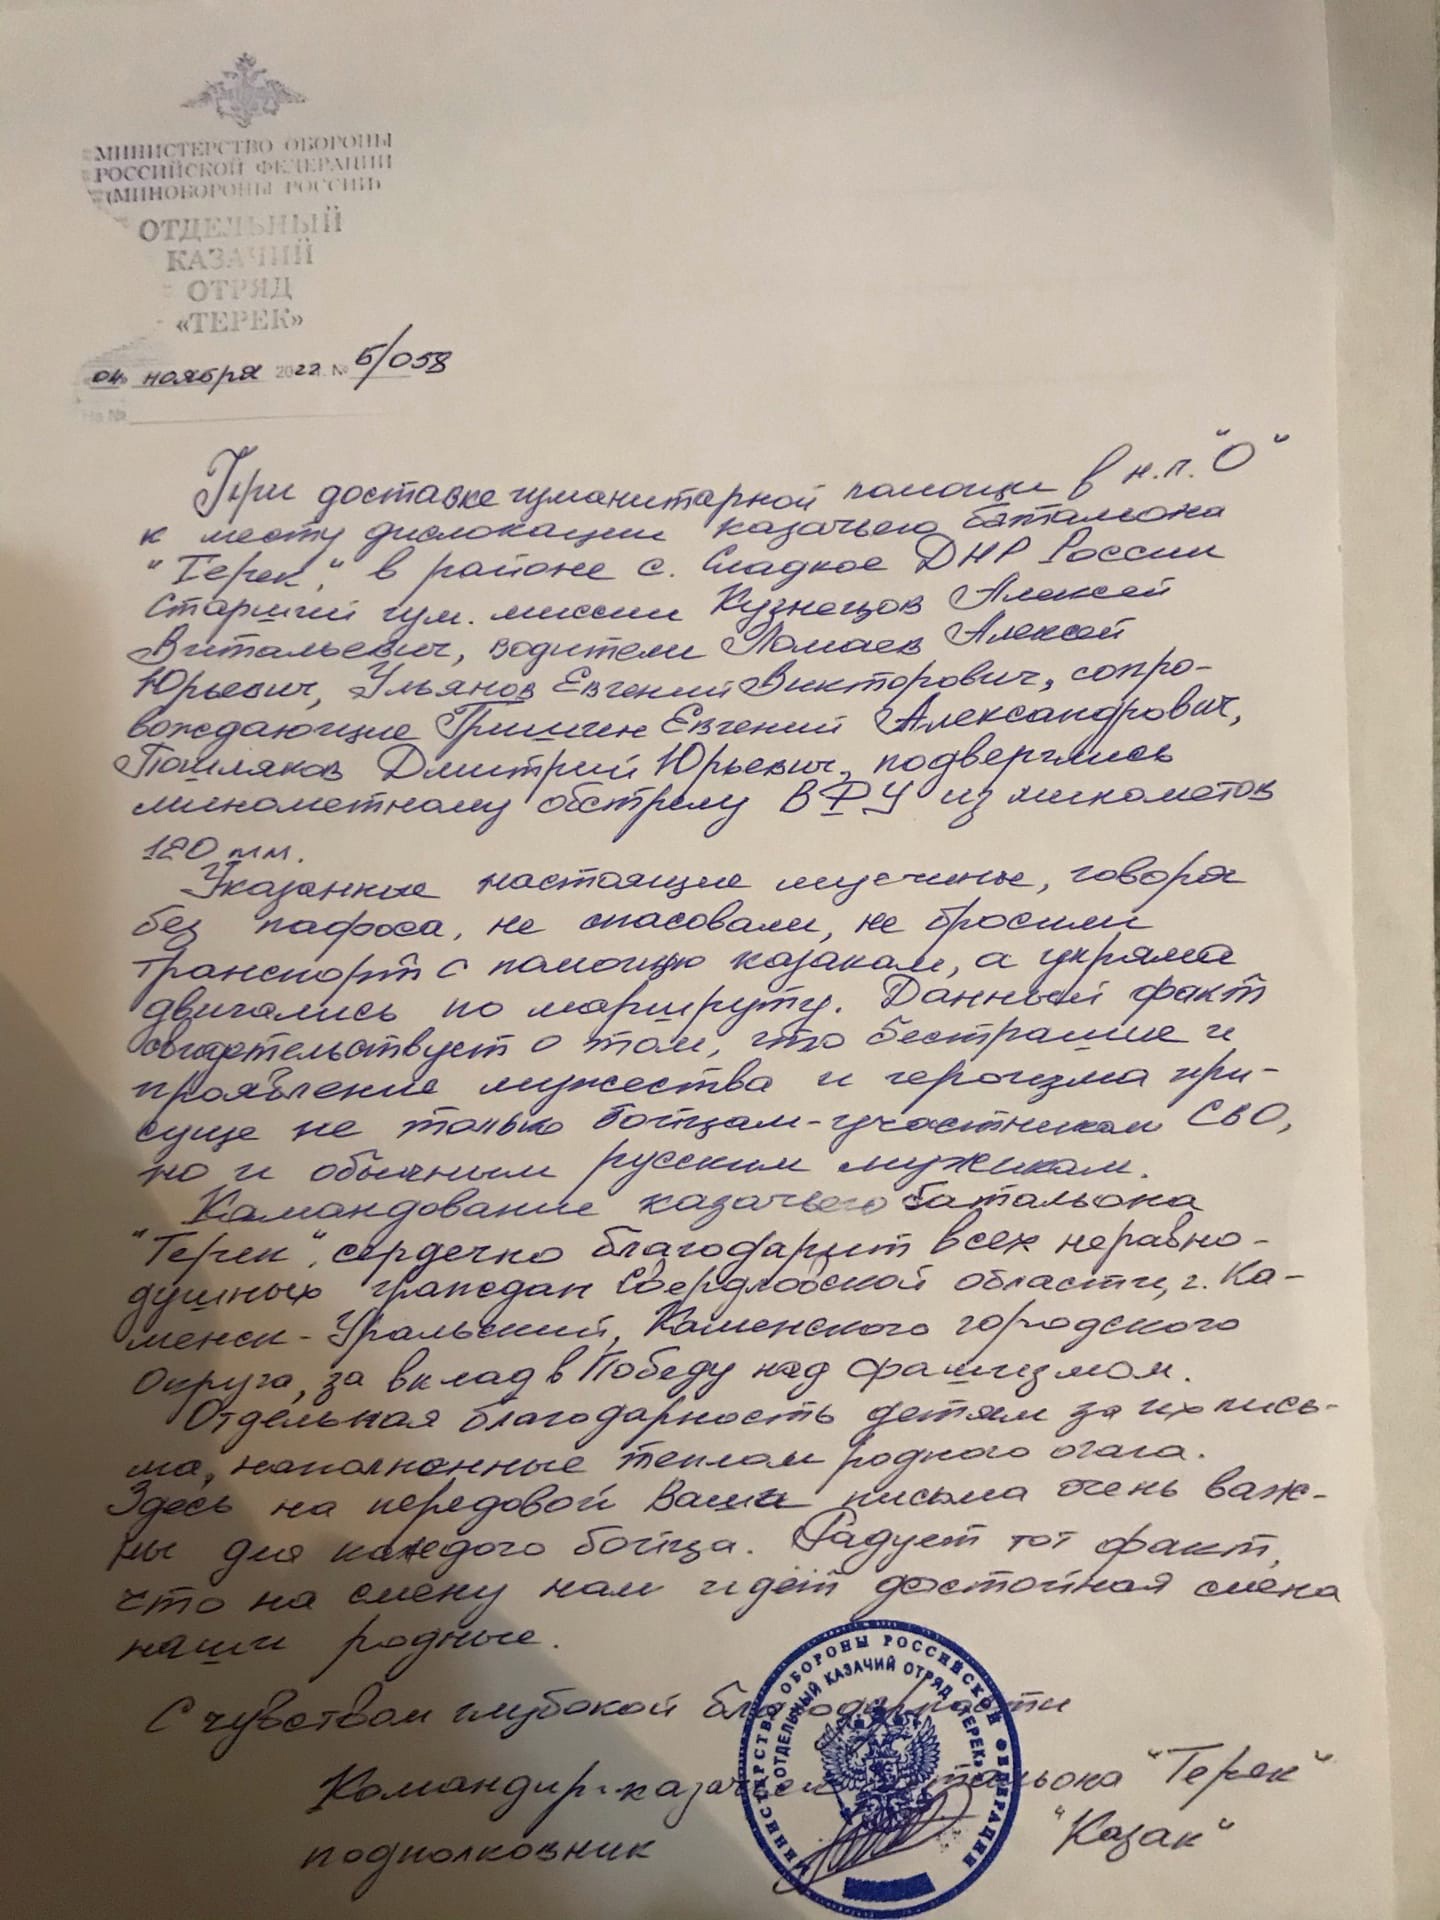 МИНИСТЕРСТВО ОБОРОНЫ
РОССИЙСКОЙ ФЕДЕРАЦИИ
(МИНОБОРОНЫ РОССИИ)
ОТДЕЛЬНЫЙ
КАЗАЧИЙ
ОТРЯД
«ТЕРЕК»
«04» ноября 2022 г. № Б/058
На №
При доставке гуманитарной помощи в н.п. "О"
к месту дислокации казачьего батальона
"Терек", в районе с. Сладкое ДНР России
Старший гум. миссии Кузнецов Алексей
Витальевич, водители Ламаев Алексей
Юрьевич, Ульянов Евгений Викторович, сопро-
вождающие Гришин Евгений Александрович,
Пошляков Дмитрий Юрьевич, подверглись
минометному обстрелу ВФУ из минометов
120 мм.
Указанные настоящие мужчины, говоря
без пафоса, не спасовали, не бросили
транспорт с помощью казакам, а упрямо
двигались по маршруту. Данный факт
свидетельствует о том, что бестрашие и
проявление мужества и героизма при-
суще не только бойцам-участникам СВО,
но и обычным русским мужикам.
Командование казачьего батальона
"Терек", сердечно благодарит всех неравно-
душных граждан Свердловской области, г. Ка-
менск-Уральский, Каменского городского
Округа, за вклад в Победу над фашизмом.
Отдельная благодарность детям за их пись-
ма, наполненные теплом родного очага.
Здесь на передовой Ваши письма очень важ-
ны для каждого бойца. Радует тот факт,
что на смену нам идёт достойная смена
наши родные.
С чувством глубокой благодарности
Командир казачьего батальона "Терек"
подполковник "Казак"
МИНИСТЕРСТВО ОБОРОНЫ РОССИЙСКОЙ ФЕДЕРАЦИИ
«ОТДЕЛЬНЫЙ КАЗАЧИЙ ОТРЯД «ТЕРЕК»